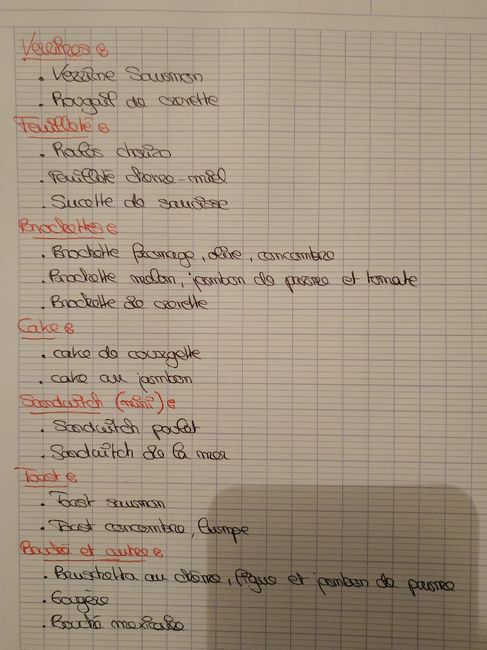 Verrines :
. Verrine Saumon
. Rougail de crevette
Feuilleté :
. Roulés chorizo
. Feuilleté chèvre-miel
. Sucette de saucisse
Brochettes :
. Brochette fromage, olive, concombre
. Brochette melon, jambon de parme et tomate
. Brochette de crevette
Cake :
. cake de courgette
. cake au jambon
Sandwitch (mini) :
. Sandwitch poulet
. Sandwitch de la mer
Toast :
. Toast saumon
. Toast concombre,
Bouché et autres :
. Bruschetta au chèvre, figue et jambon de parme
. Gougère
. Bouché mexicain